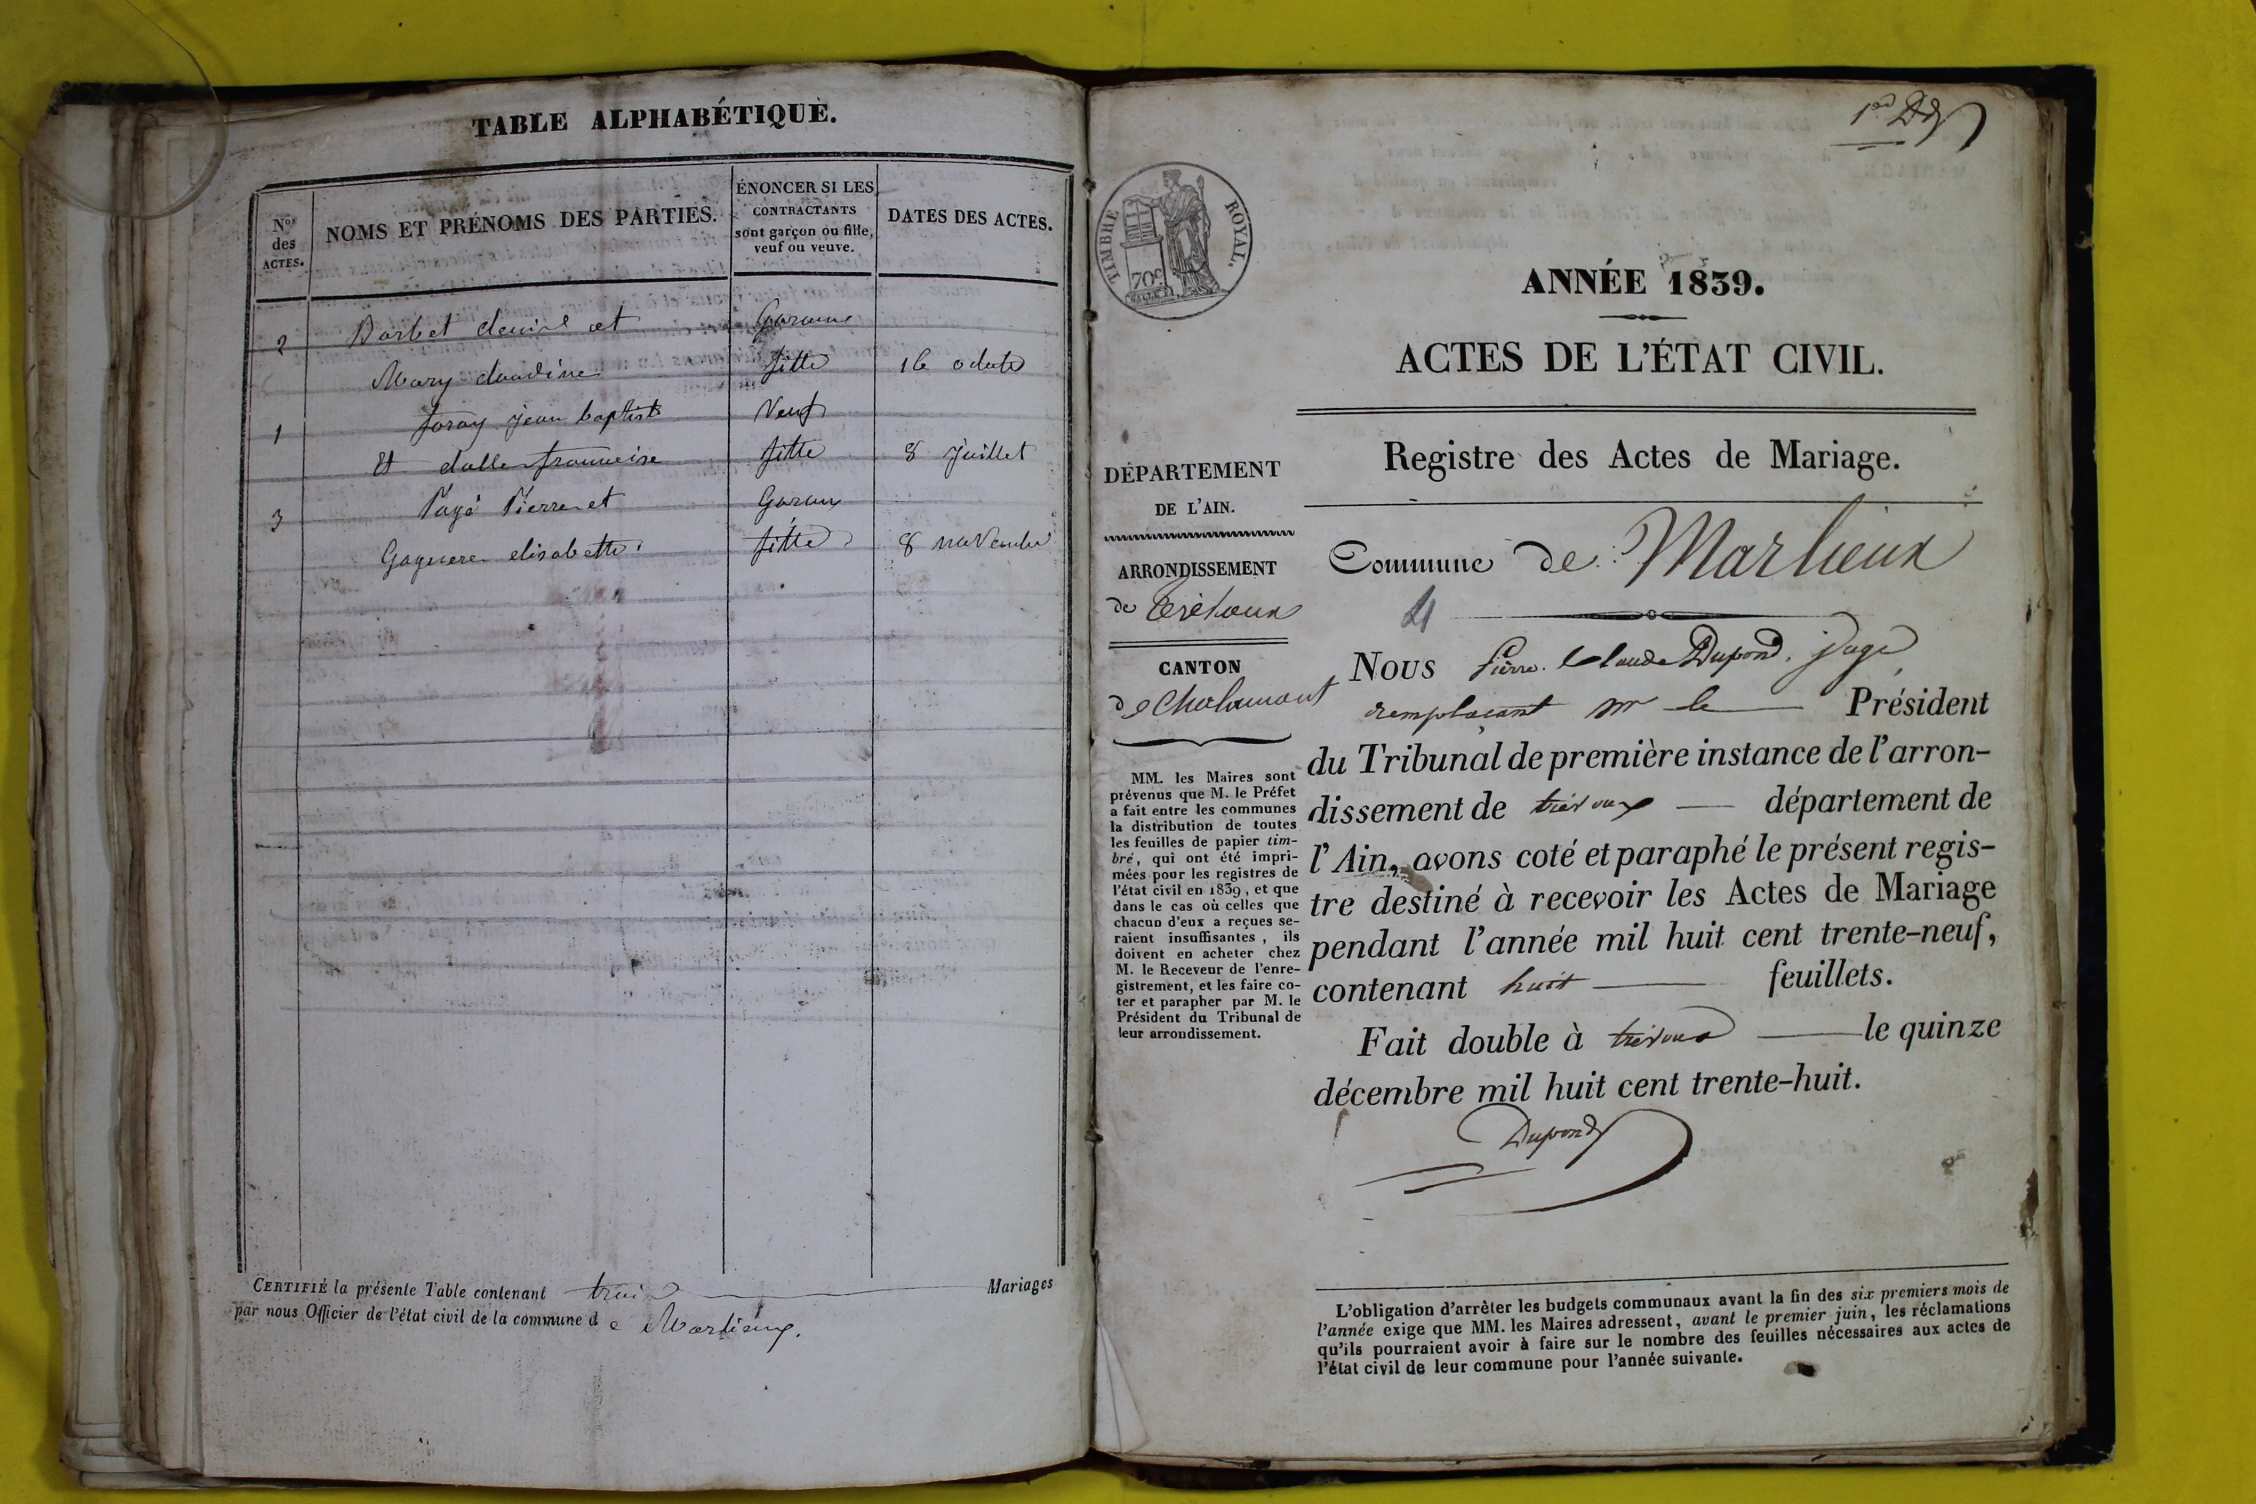 TABLE ALPHABÉTIQUE.
Nos
des
ACTES.
NOMS ET PRÉNOMS DES PARTIES.
ÉNONCER SI LES
CONTRACTANTS
sont garçon ou fille,
veuf ou veuve.
DATES DES ACTES.
2 Barbet et
Mary claudine fille 16
1 foray jean baptiste Veuf
Et francoise fille 8 juillet
3 Payé Pierre et
elisabette fille 8 novembre
CERTIFIÉ la présente Table contenant trois Mariages
par nous Officier de l'état civil de la commune de Marlieux.
1er
TIMBRE ROYAL.
70c
ANNÉE 1839.
ACTES DE L'ÉTAT CIVIL.
Registre des Actes de Mariage.
DÉPARTEMENT
DE L'AIN.
ARRONDISSEMENT
de Trévoux
CANTON
de Chalamont
MM. les Maires sont
prévenus que M. le Préfet
a fait entre les communes
la distribution de toutes
les feuilles de papier tim-
bré, qui ont été impri-
mées pour les registres de
l'état civil en 1839, et que
dans le cas où celles que
chacun d'eux a reçues se-
raient insuffisantes, ils
doivent en acheter chez
M. le Receveur de l'enre-
gistrement, et les faire co-
ter et parapher par M. le
Président du Tribunal de
leur arrondissement.
Commune de Marlieux
Nous Pierre Claude Dupond, juge
remplaçant mr le Président
du Tribunal de première instance de l'arron-
dissement de trévoux département de
l'Ain, avons coté et paraphé le présent regis-
tre destiné à recevoir les Actes de Mariage
pendant l'année mil huit cent trente-neuf,
contenant huit feuillets.
Fait double à trévoux le quinze
décembre mil huit cent trente-huit.
Dupond
L'obligation d'arrêter les budgets communaux avant la fin des six premiers mois de
l'année exige que MM. les Maires adressent, avant le premier juin, les réclamations
qu'ils pourraient avoir à faire sur le nombre des feuilles nécessaires aux actes de
l'état civil de leur commune pour l'année suivante.